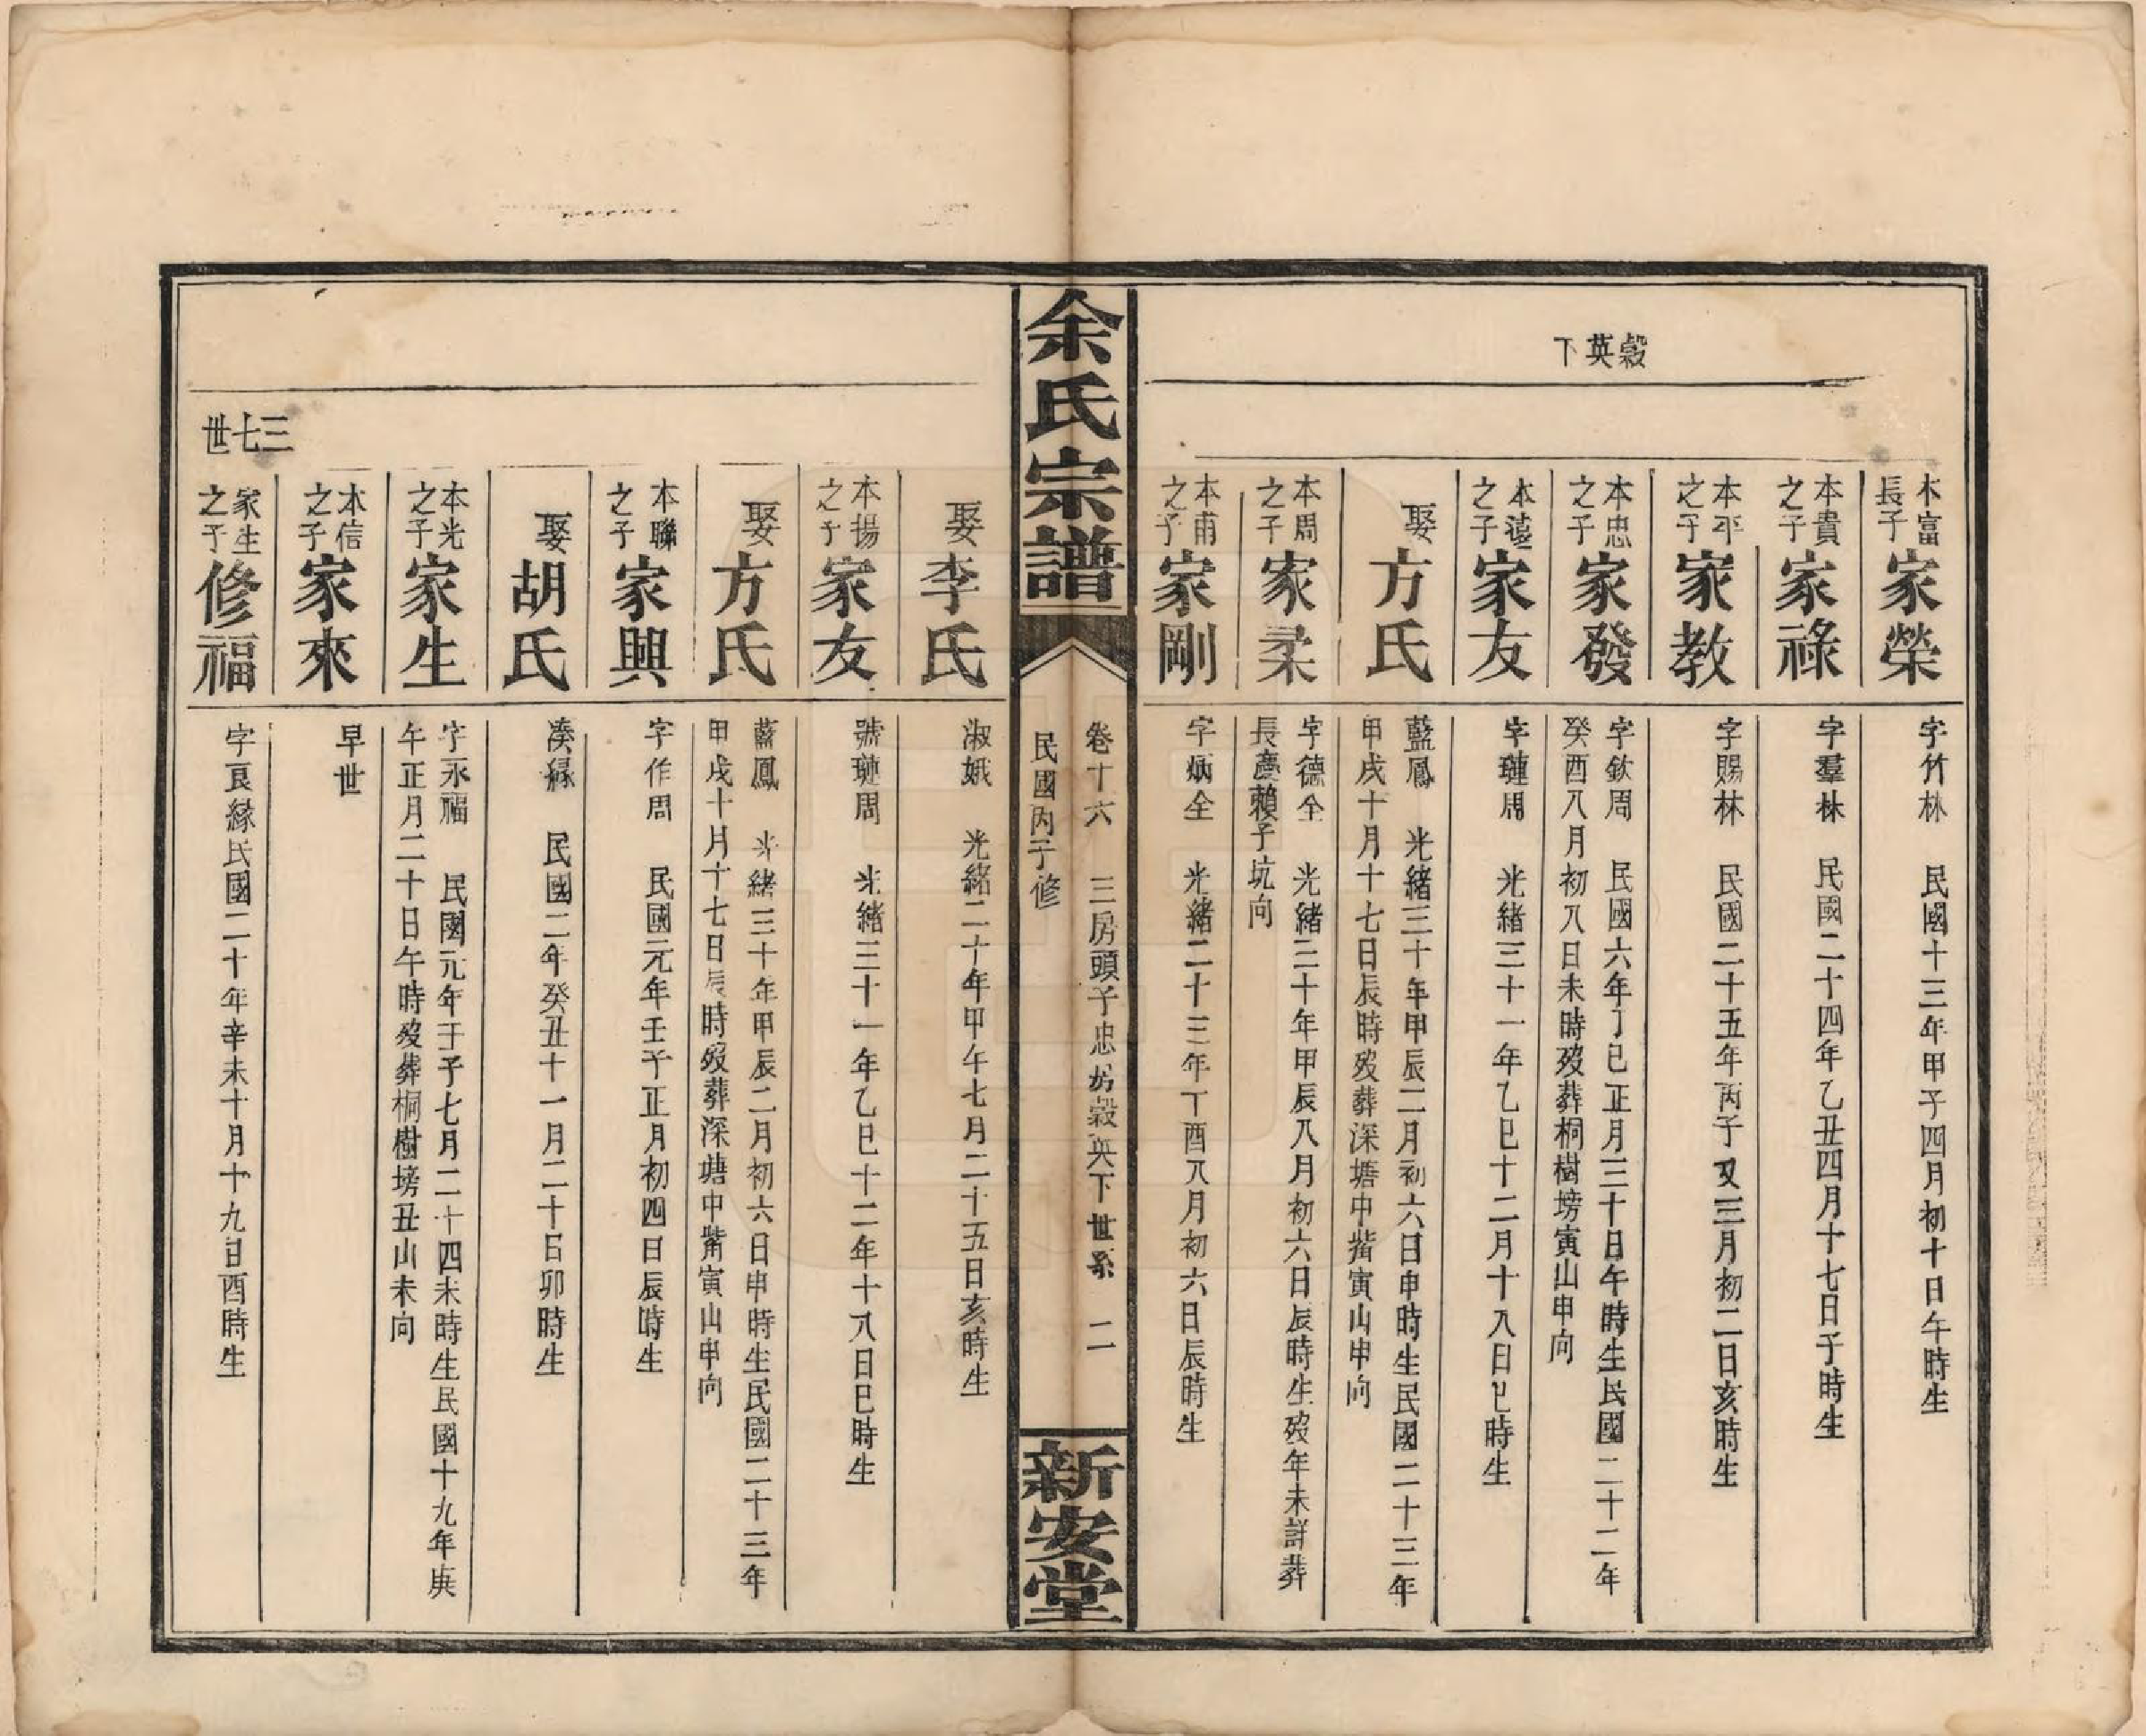 穀英下
本富長子
家榮
字竹林　民國十三年甲子四月初十日午時生
本貴之子
家祿
字羣林　民國二十四年乙丑四月十七日子時生
本平之子
家教
字賜林　民國二十五年丙子又三月初二日亥時生
本忠之子
家發
字欽周　民國六年丁巳正月三十日午時生民國二十二年
癸酉八月初八日未時歿葬桐樹塝寅山申向
之子
家友
字璉周　光緒三十一年乙巳十二月十八日巳時生
娶
方氏
藍鳳　光緒三十年甲辰二月初六日申時生民國二十三年
甲戌十月十七日辰時歿葬深塘中嘴寅山申向
本周之子
家柔
字德全　光緒三十年甲辰八月初六日辰時生歿年未詳葬
長慶賴子坑向
本甫之子
家剛
字炳全　光緒二十三年丁酉八月初六日辰時生
余氏宗譜
卷十六　三房頭予忠房穀英下世系　二
民國丙子修
新安堂
娶
李氏
淑娥　光緒二十年甲午七月二十五日亥時生
本揚之子
家友
號璉周　光緒三十一年乙巳十二年十八日巳時生
娶
方氏
藍鳳　光緒三十年甲辰二月初六日申時生民國二十三年
甲戌十月十七日辰時歿葬深塘中嘴寅山申向
本聯之子
家興
字作周　民國元年壬子正月初四日辰時生
娶
胡氏
湊緣　民國二年癸丑十一月二十日卯時生
本光之子
家生
字永福　民國元年壬子七月二十四未時生民國十九年庚
午正月二十日午時歿葬桐樹塝丑山未向
本信之子
家來
早世
三七世
家生之子
修福
字良緣民國二十年辛未十月十九日酉時生